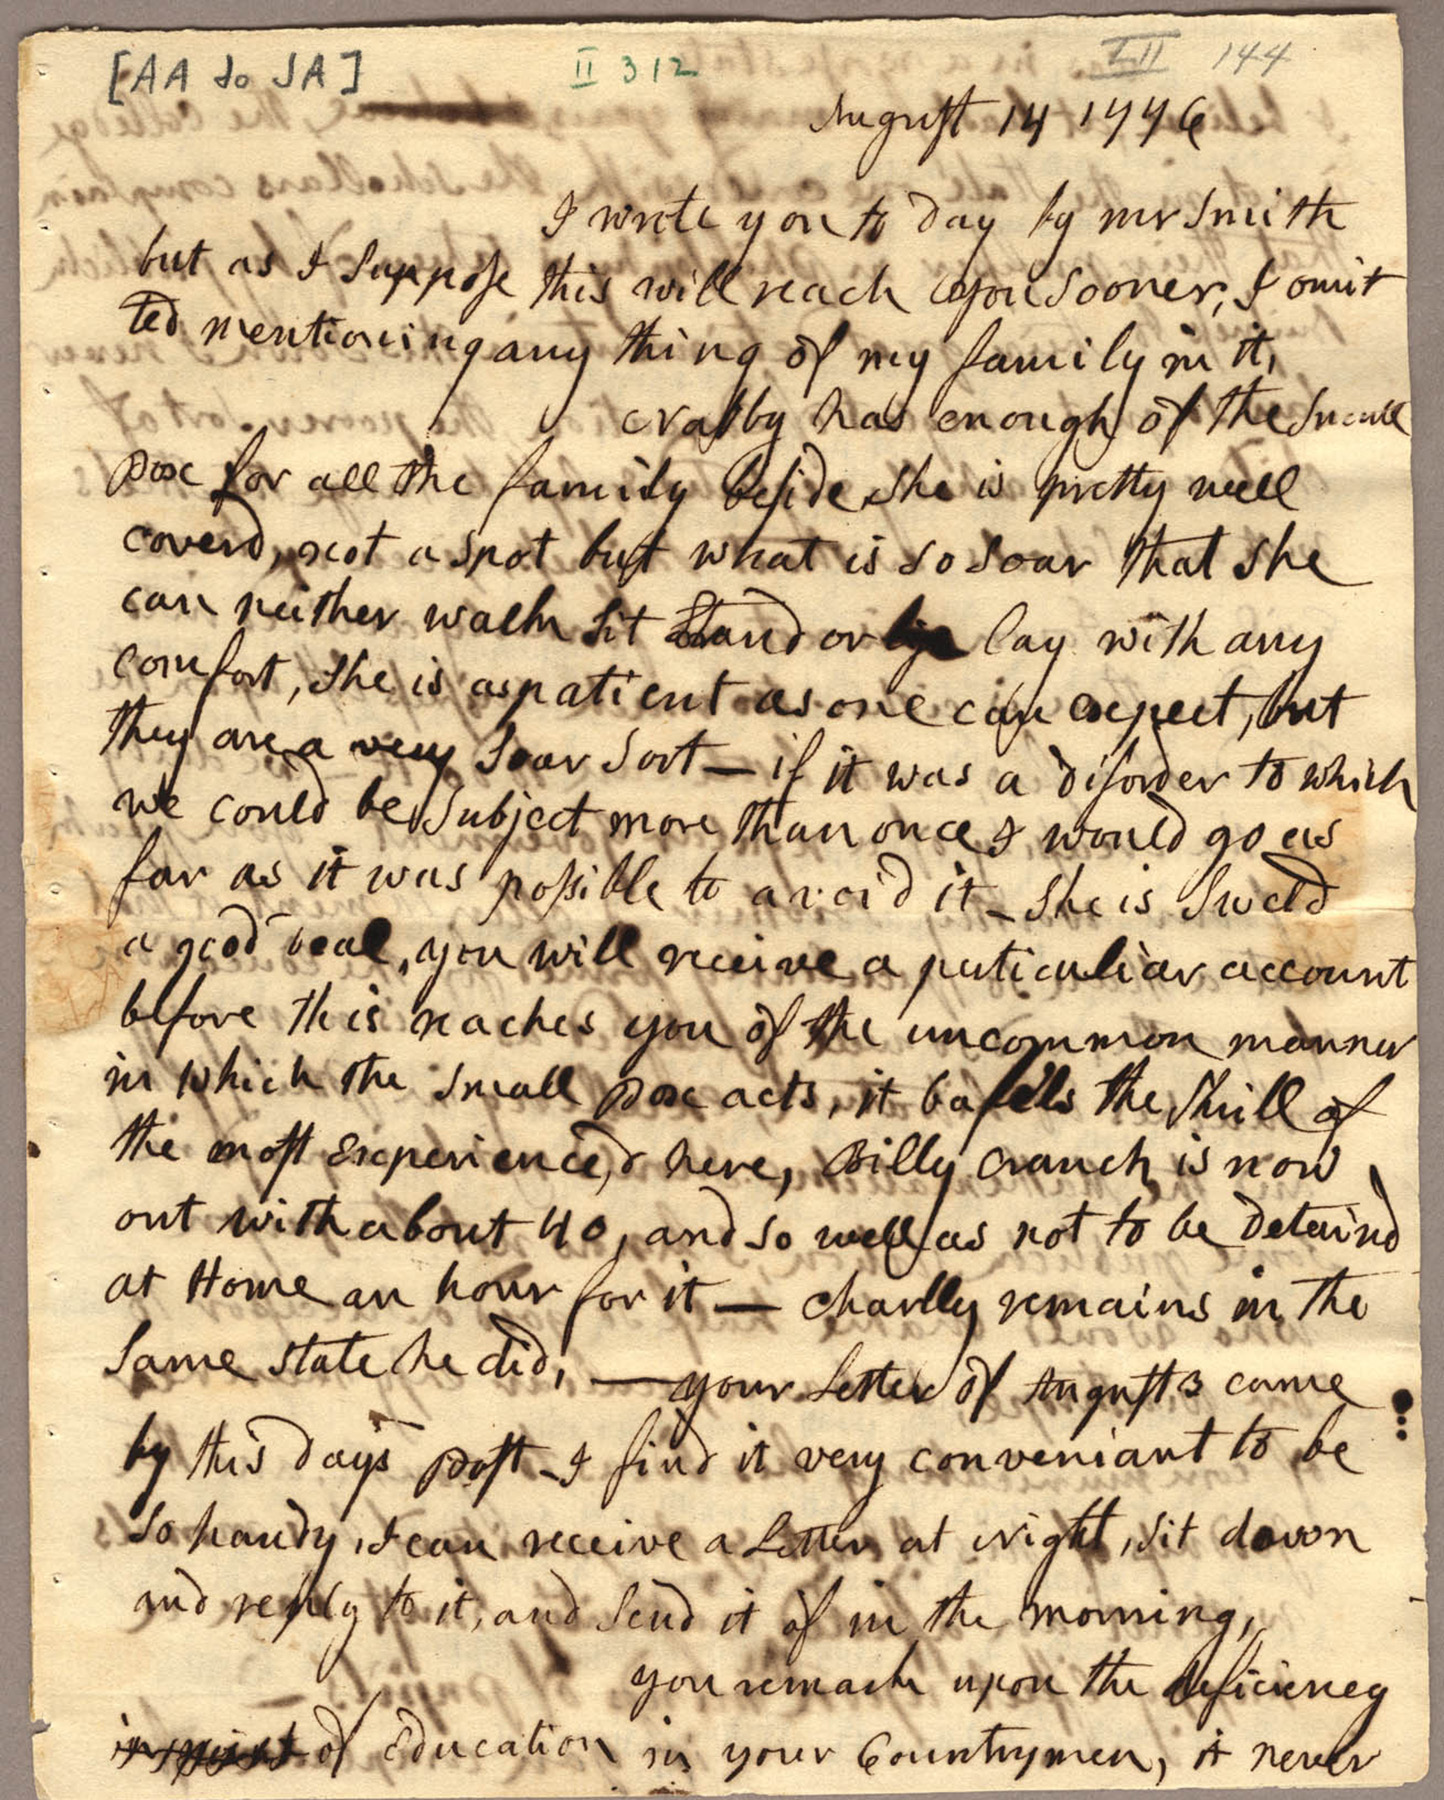 [AA to JA]
II 312
III 144
August 14 1776
I wrote you to day by mr Smith
but as I Suppose this will reach you Sooner, I omit
ted mentioning any thing of my family in it,
Nabby has enough of the Small
pox for all the family beside, She is pretty well
coverd, not a spot but what is so soar that she
can neither walk Sit Stand or lay with any
comfort, She is as patient as one can expect, but
they are a very Soar Sort — if it was a disorder to which
we could be Subject more than once I would go as
far as it was possible to avoid it — She is Sweld
a good deal, you will receive a perticuliar account
before this reaches you of the uncommon manner
in which the Small pox acts, it bafels the Skill of
the most Experienced here, Billy Cranch is now
out with about 40, and so well as not to be detaind
at Home an hour for it — Charlly remains in the
Same state he did, — your Letter of August 3 came
by this days post — I find it very conveniant to be
So handy, I can receive a Letter at Night, Sit down
and reply to it, and Send it of in the morning,
you remark upon the deficiency
in point of Education in your Countrymen, it never